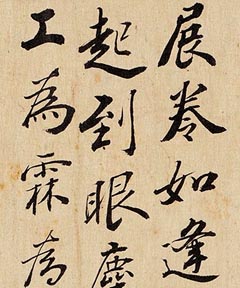 展卷如逢
起到眼
工為霖為